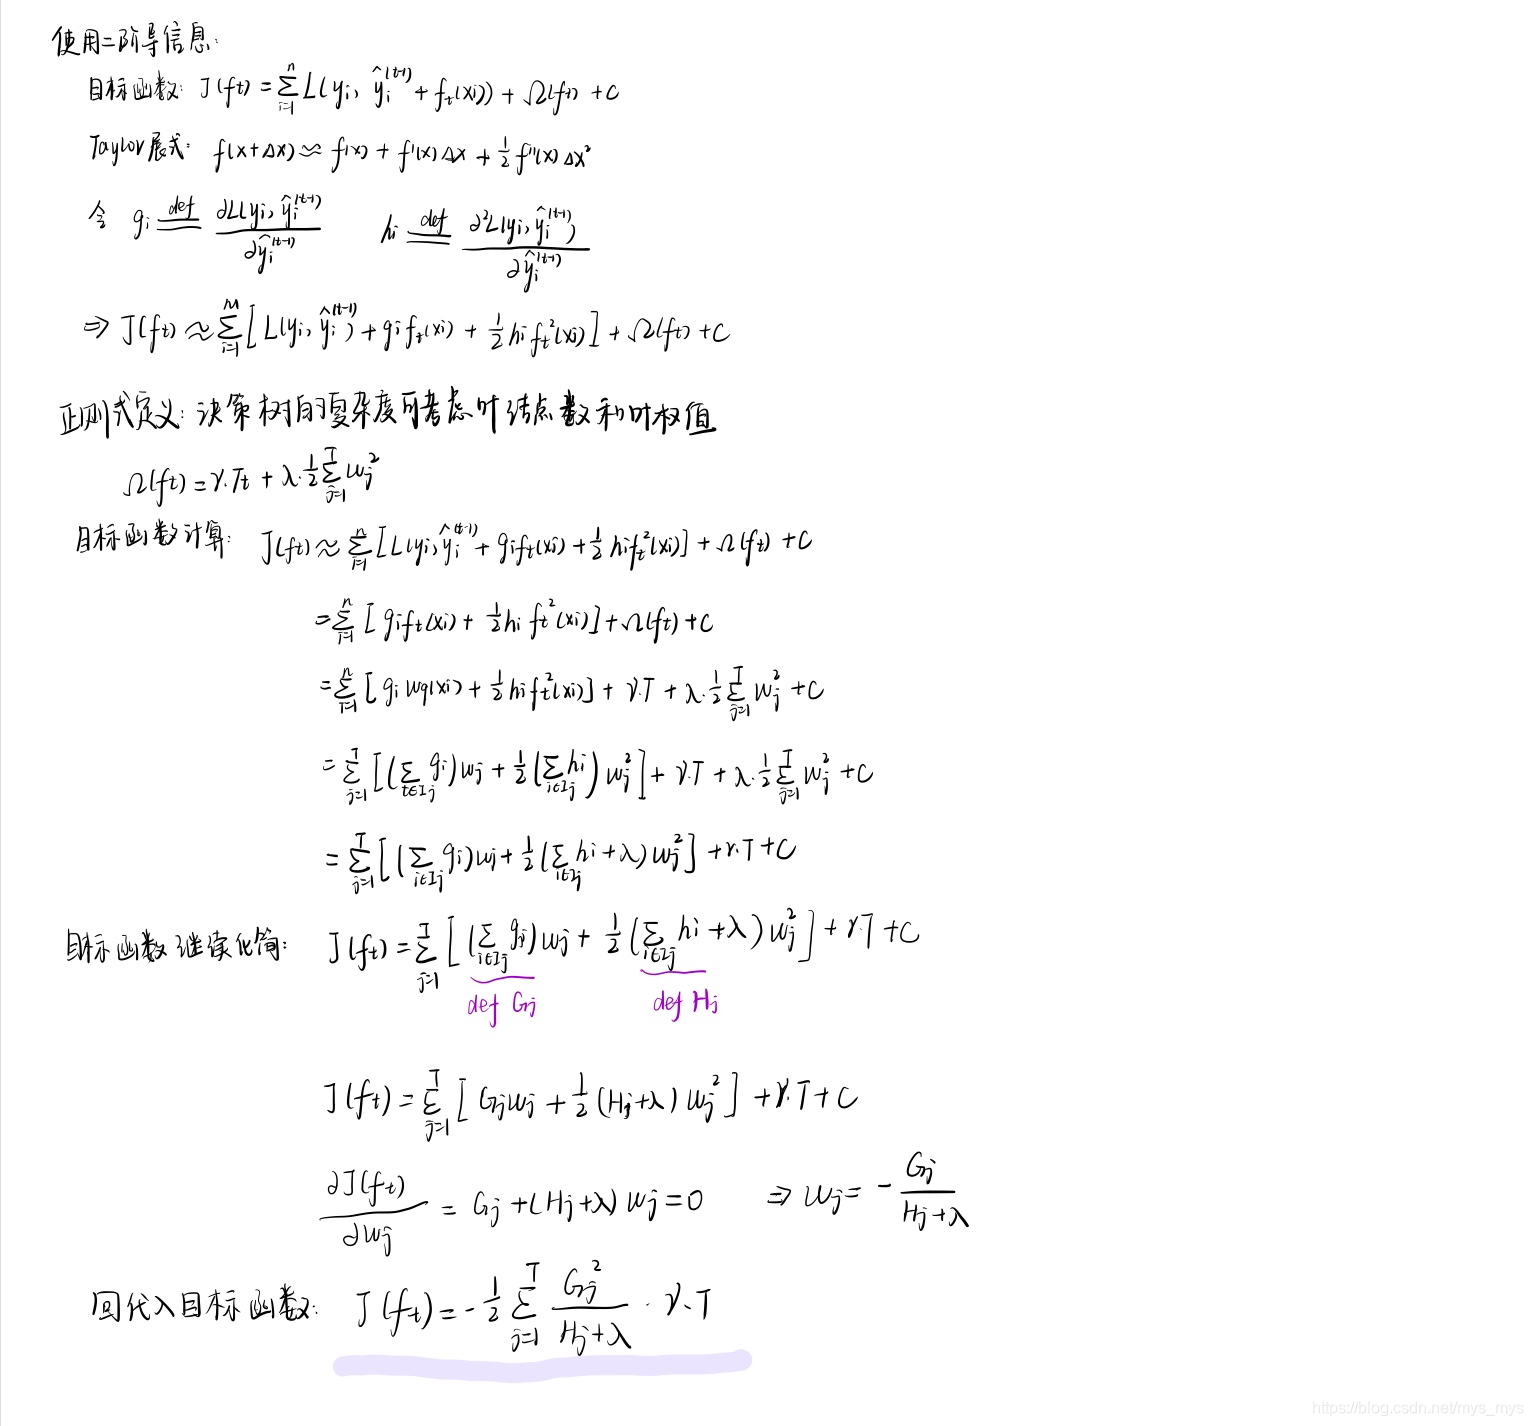 使用二阶导信息:
目标函数: J(ft) = ∑_{i=1}^{n} L(yi, ŷi^(t-1) + ft(xi)) + Ω(ft) + C
Taylor展式: f(x+Δx) ≈ f(x) + f'(x)Δx + ½f''(x)Δx²
令 gi ≝ ∂L(yi, ŷi^(t-1)) / ∂ŷi^(t-1)    hi ≝ ∂²L(yi, ŷi^(t-1)) / ∂ŷi^(t-1)
⇒ J(ft) ≈ ∑_{i=1}^{n} [L(yi, ŷi^(t-1)) + gi ft(xi) + ½ hi ft²(xi)] + Ω(ft) + C
正则式定义: 决策树的复杂度可考虑叶结点数和叶权值
Ω(ft) = γ·Tt + λ·½ ∑_{j=1}^{T} wj²
目标函数计算: J(ft) ≈ ∑_{i=1}^{n} [L(yi, ŷi^(t-1) + gi ft(xi) + ½ hi ft²(xi)] + Ω(ft) + C
= ∑_{i=1}^{n} [gi ft(xi) + ½ hi ft²(xi)] + Ω(ft) + C
= ∑_{i=1}^{n} [gi wq(xi) + ½ hi ft²(xi)] + γ·T + λ·½ ∑_{j=1}^{T} wj² + C
= ∑_{j=1}^{T} [(∑_{i∈Ij} gi) wj + ½ (∑_{i∈Ij} hi) wj²] + γ·T + λ·½ ∑_{j=1}^{T} wj² + C
= ∑_{j=1}^{T} [(∑_{i∈Ij} gi) wj + ½ (∑_{i∈Ij} hi + λ) wj²] + γ·T + C
目标函数继续化简: J(ft) = ∑_{j=1}^{T} [(∑_{i∈Ij} gi) wj + ½ (∑_{i∈Ij} hi + λ) wj²] + γ·T + C
def Gj    def Hj
J(ft) = ∑_{j=1}^{T} [Gj wj + ½ (Hj + λ) wj²] + γ·T + C
∂J(ft) / ∂wj = Gj + (Hj + λ) wj = 0    ⇒ wj = - Gj / (Hj + λ)
回代入目标函数: J(ft) = -½ ∑_{j=1}^{T} Gj² / (Hj + λ) · γ·T
https://blog.csdn.net/mys_mys